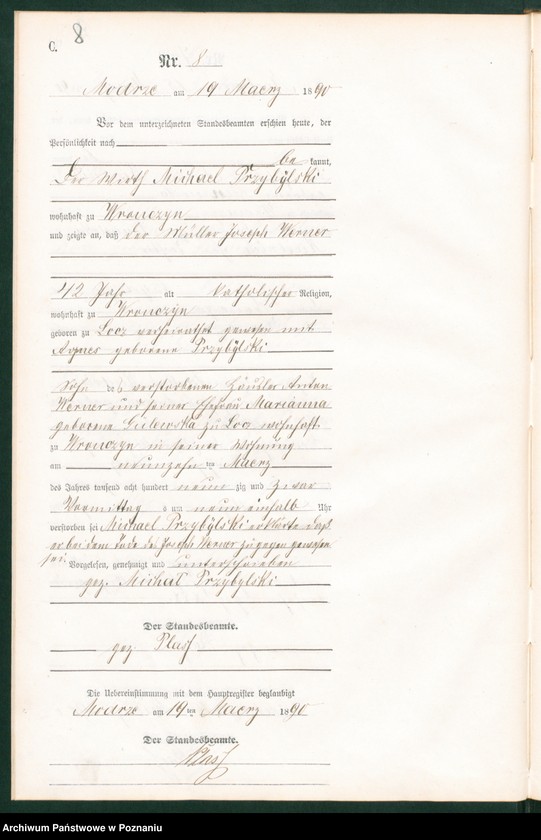 C. 8
Nr. 8
Modrze am 19 Maerz 1890
Vor dem unterzeichneten Standesbeamten erschien heute, der
Persönlichkeit nach
be kannt,
Der Wirth Michael Przybylski
wohnhaft zu Wronczyn
und zeigte an, daß der Müller Joseph Werner
42 Jahr alt Katholischer Religion,
wohnhaft zu Wronczyn
geboren zu Locz verheirathet gewesen mit
Agnes geborene Przybylski
Sohn des verstorbenen Häusler Anton
Werner und seiner Ehefrau Marianna
geborene zu Locz wohnhaft
zu Wronczyn in seiner Wohnung
am neunzehn ten Maerz
des Jahres tausend acht hundert neun zig und zwar
Vormittag s um neun einhalb Uhr
verstorben sei Michael Przybylski erklärte daß
er bei dem Tode des Joseph Werner zugegen gewesen
sei. Vorgelesen, genehmigt und unterschrieben
gez. Michal Przybylski
Der Standesbeamte.
gez.
Die Uebereinstimmung mit dem Hauptregister beglaubigt
Modrze am 19 ten Maerz 1890
Der Standesbeamte.
Archiwum Państwowe w Poznaniu